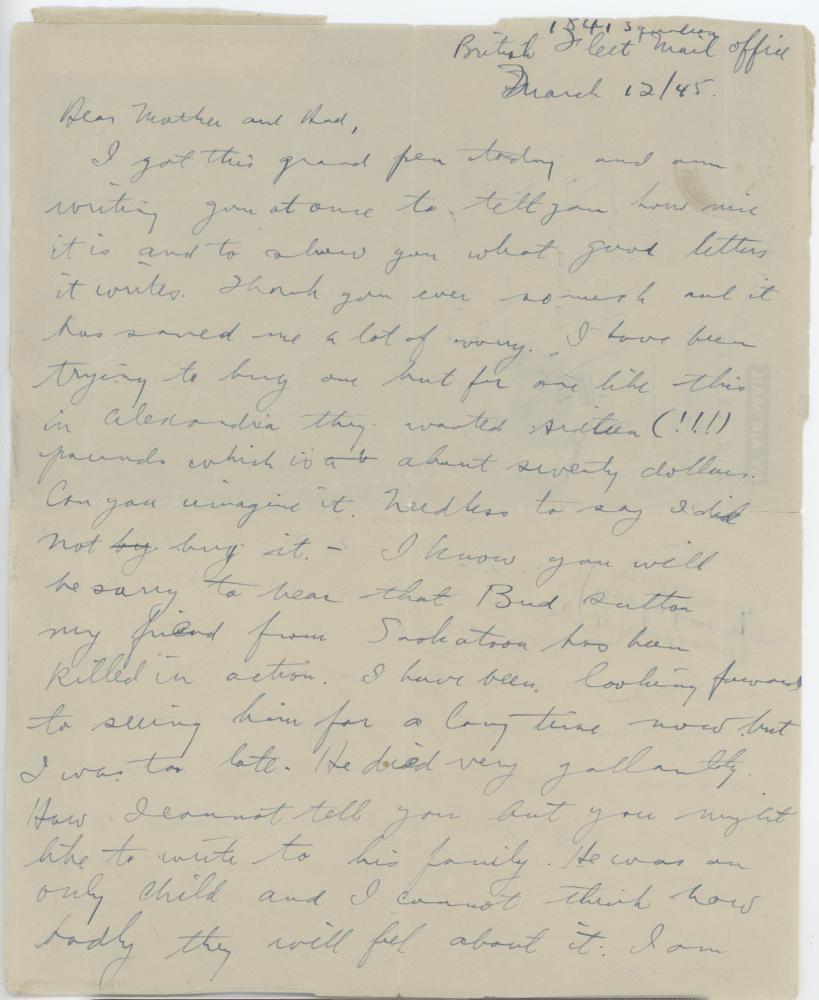 1841 Squadron
British Fleet Mail office
March 12/45.
Dear Mother and Dad,
I got this grand pen today and am
writing you at once to tell you how nice
it is and to show you what good letters
it writes. Thank you ever so much and it
has saved me a lot of worry. I have been
trying to buy one but for one like this
in Alexandria they wanted sixteen (!!!!)
pounds which is a b about seventy dollars.
Can you imagine it. Needless to say I did
not by buy it. - I know you will
be sorry to hear that Bud Sutton
my friend from Saskatoon has been
killed in action. I have been looking forward
to seeing him for a long time now but
I was too late. He died very gallantly.
How I cannot tell you but you might
like to write to his family. He was an
only child and I cannot think how
badly they will feel about it. I am